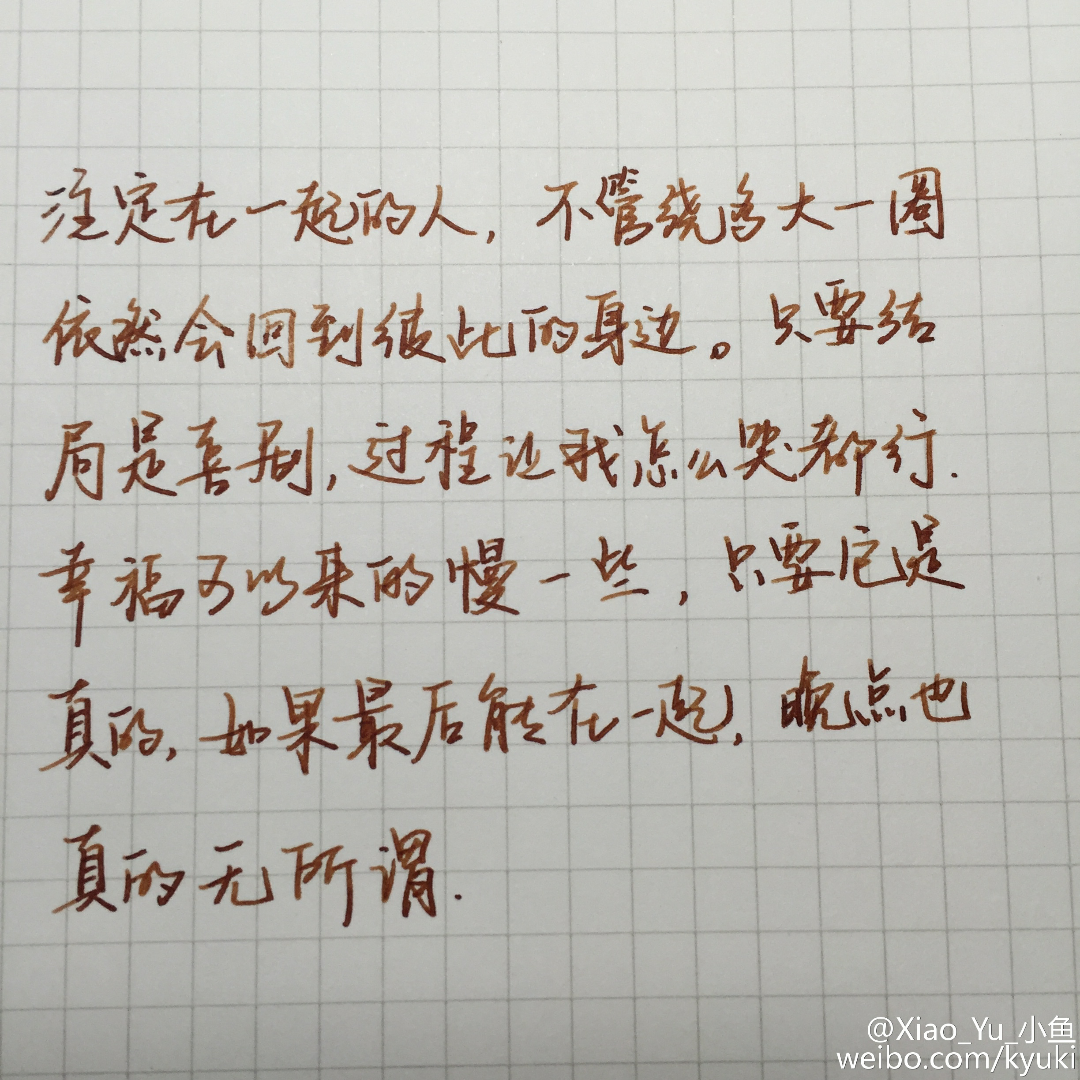 注定在一起的人，不管绕多大一圈
依然会回到彼此的身边。只要结
局是喜剧，过程让我怎么哭都行.
幸福可以来的慢一些，只要它是
真的，如果最后能在一起，晚点也
真的无所谓.
@Xiao_Yu_小鱼
weibo.com/kyuki